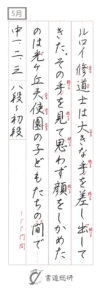 5月
ルロイ修道士は大きな手を差し出して
きた。その手を見て思わず顔をしかめた
のは光ヶ丘天使園の子どもたちの間で
中一、二、三 八段〜初段
書道総研